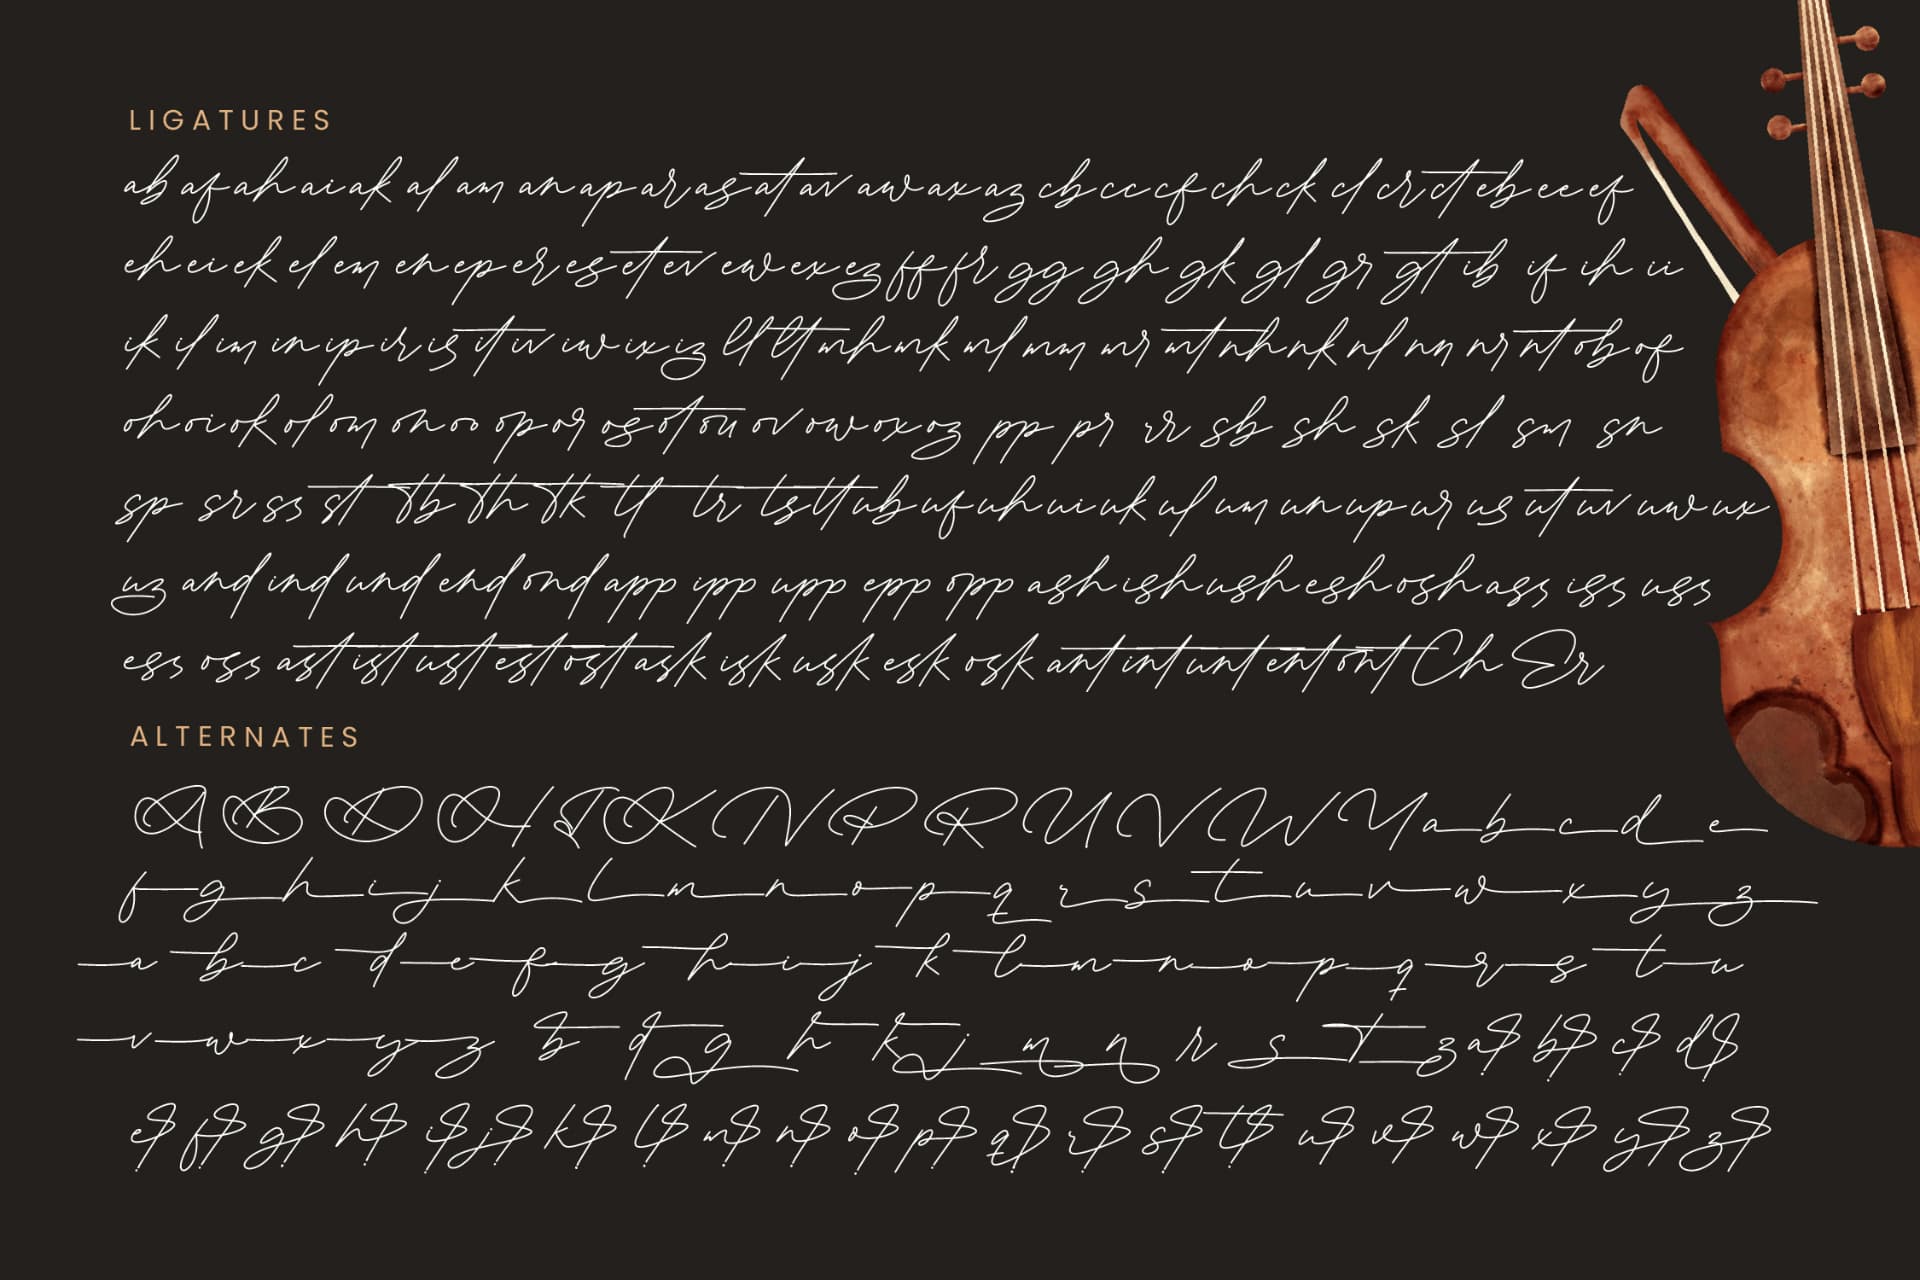 LIGATURES
ab af ah ai ak al am an ap ar as at av aw ax az cb cc cf ch ck cl cr ct eb ee ef
eh ei ek el em en ep er es et ev ew ex ez ff fr gg gh gk gl gr gt ib if ih ii
ik il im in ip ir is it iv iw ix iz ll lt mh mk ml mm mr mt nh nk nl nn nr nt ob of
oh oi ok ol om on oo op or os ot ou ov ow ox oz pp pr rr sb sh sk sl sm sn
sp sr ss st tb th tk tl tr ts tt ub uf uh ui uk ul um un up ur us ut uv uw ux
uz and ind und end ond app ipp upp epp opp ash ish ush esh osh ass iss uss
ess oss ast ist ust est ost ask isk usk esk osk ant int unt ent ont Ch Er
ALTERNATES
A B D H I K N P R U V W Y a b c d e
f g h i j k l m n o p q r s t u v w x y z
a b c d e f g h i j k l m n o p q r s t u
v w x y z b d g h k j m n r s t z a b c d
e f g h i j k l m n o p q r s t u v w x y z